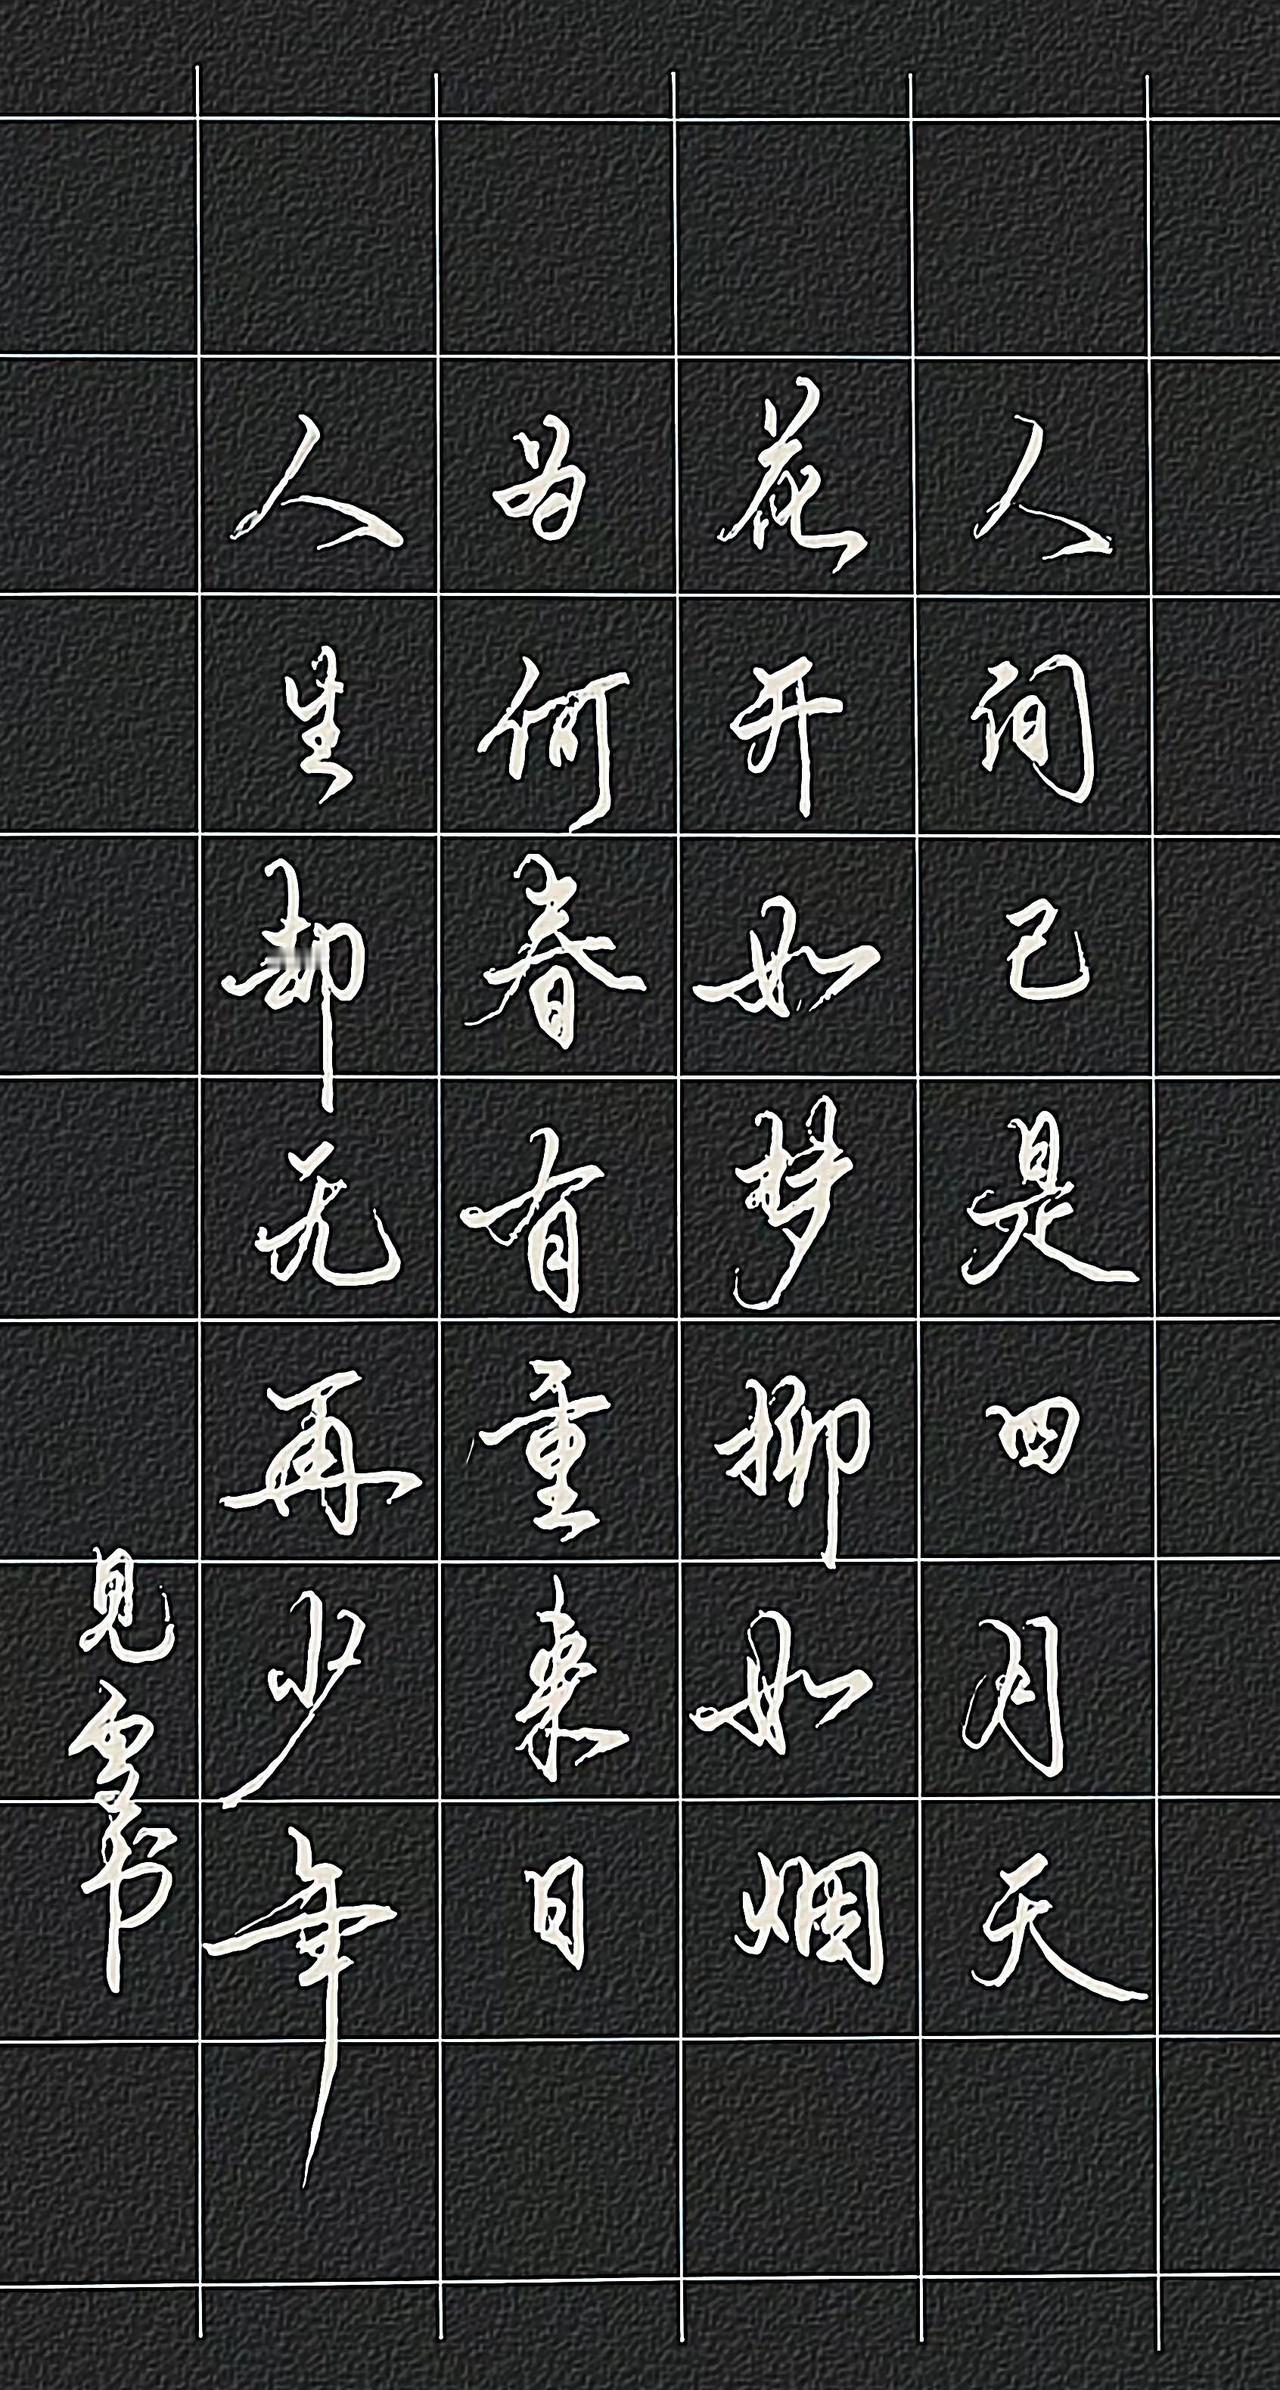 人间已是四月天
花开如梦柳如烟
为何春有重来日
人生却无再少年
见雪书